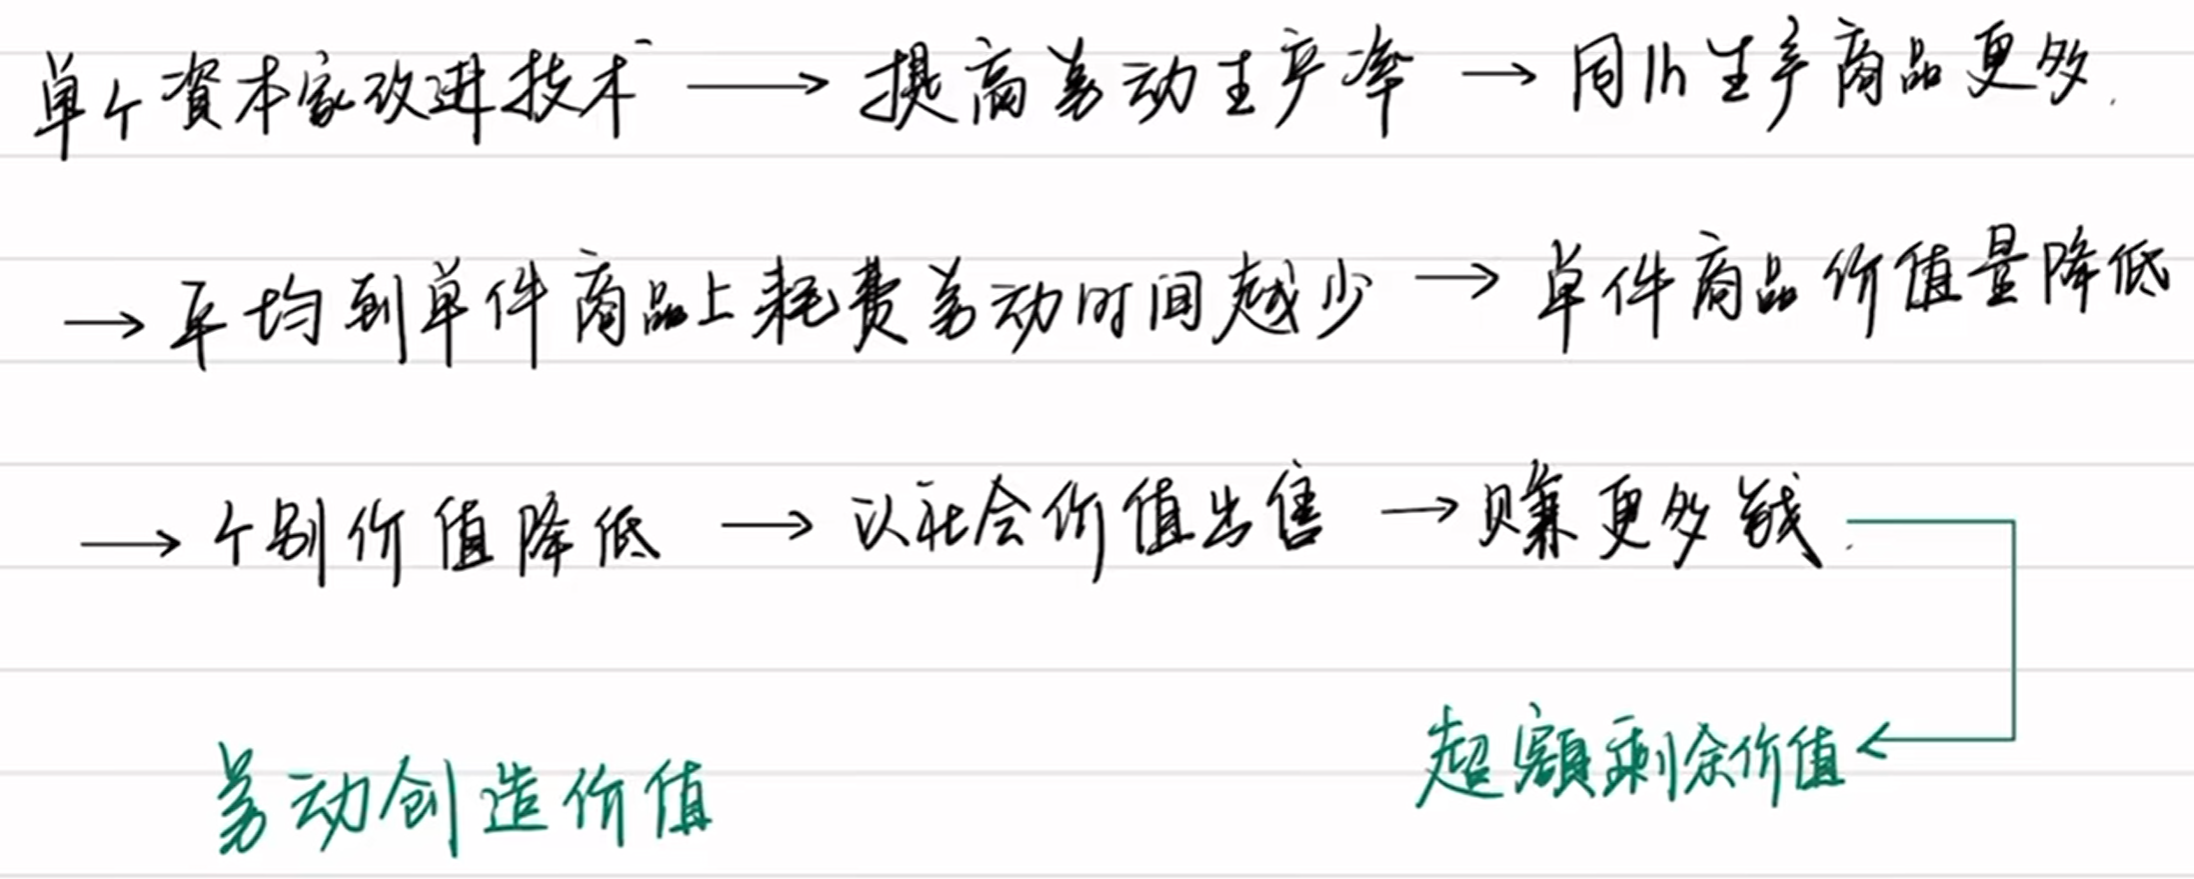 单个資本家改进技术 → 提高劳动生产率 → 同1h生产商品更多.
→ 平均到单件商品上耗费劳动时间越少 → 单件商品价值量降低
→ 个别价值降低 → 以社会价值出售 → 赚更多钱.
超额剩余价值
劳动创造价值